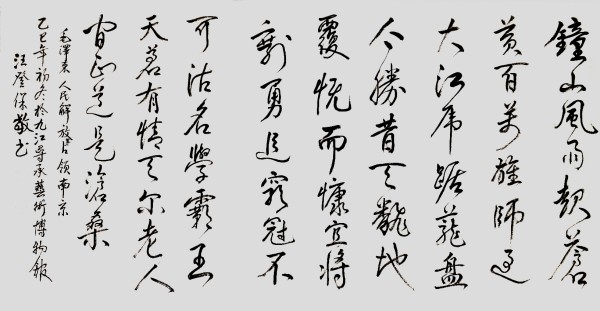 鐘山風雨起蒼
黄百萬雄師過
大江虎踞龍盤
今勝昔天翻地
覆慨而慷宜將
剩勇追窮寇不
可沽名學霸王
天若有情天亦老人
間正道是滄桑
毛澤東 人民解放占領南京
乙巳年初冬於九江承藝術博物館
汪登保敬書